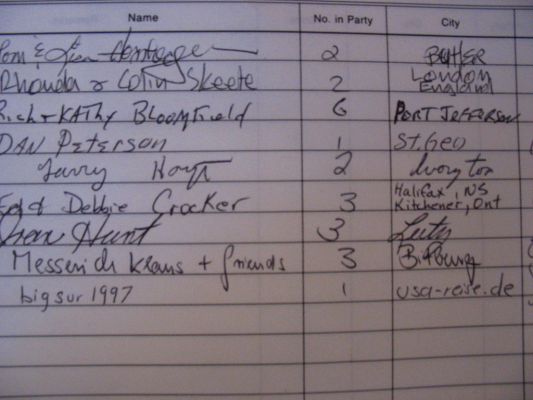 Name No. in Party City
& Lisa 2 BUTLER
Rhonda & Colin Skeete 2 London England
Rich + KATHY BLOOMFIELD 6 PORT JEFFERSON
DAN PETERSON 1 ST. GEO
Larry Hoyt 2 Ivoryton
Ed & Debbie Crocker 3 Halifax, NS Kitchener, Ont
Hunt 3
Klaus + friends 3 Bitburg
big sur 1997 1 usa-reise.de